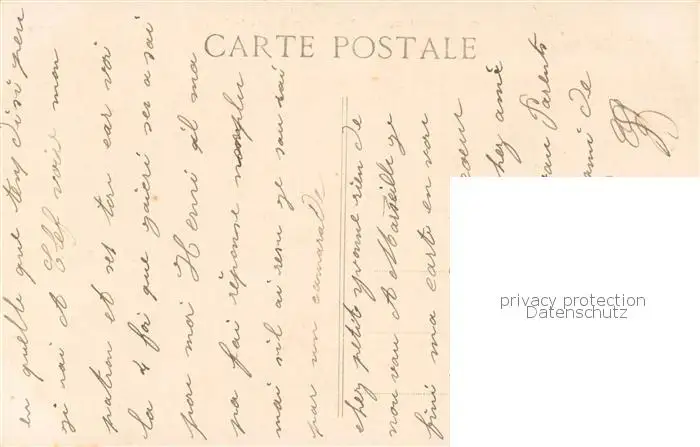 CARTE POSTALE
en quelle que tens disi peu
ji rai A voir mon
patron et ses tou car voi
la 4 foi que jaicri ses a sai
pour moi Henri il ma
pa fai réponse non plu
mai sil ai resu ge sau rai
par un camarade
cher petit yvonne rien de
nou vau A Marseille ge
fini ma carte en vou
coeur
cher ami
Parents
ami de
privacy protection
Datenschutz